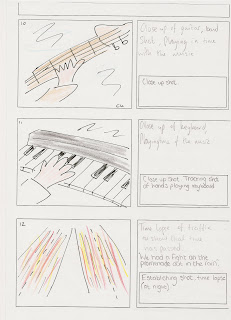 10
Close up of guitar, hand
Shot. Playing in time
with the music
Close up shot.
CU
11
Close up of keyboard,
Playing in time of the music
Close-up Shot. Tracking shot
of hands playing keyboard
12
Time lapse of traffic
to show that time
has passed.
We had a fight on the
promenade out in the rain.
Establishing shot, time lapse
(at night)